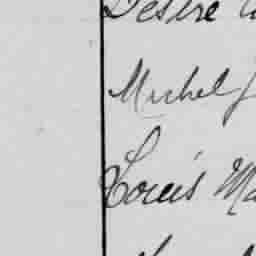 Désiré
Michel
Louis Ma